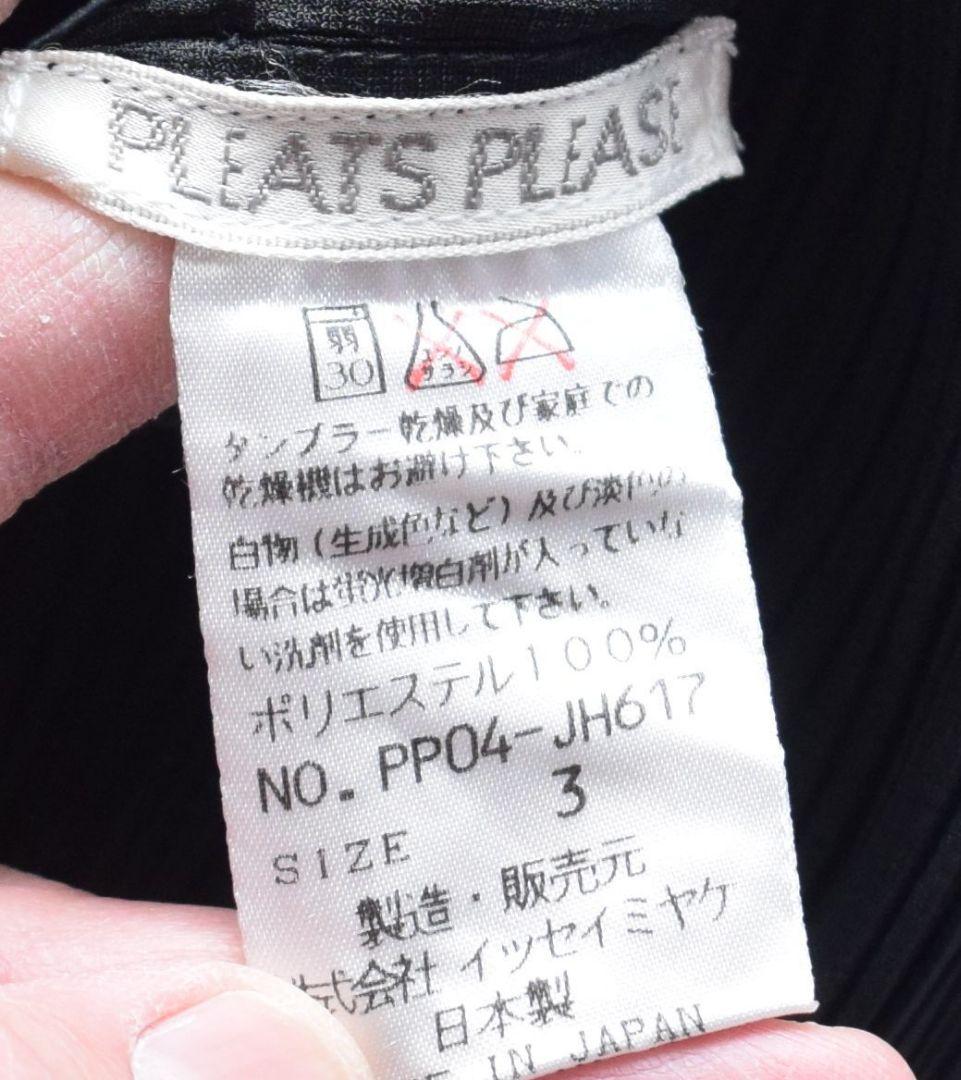 PLEATS PLEASE
弱
30
エンソ
サラシ
タンブラー乾燥及び家庭での
乾燥機はお避け下さい。
白物（生成色など）及び淡色の
場合は蛍光増白剤が入っていな
い洗剤を使用して下さい。
ポリエステル100%
NO. PP04-JH617
SIZE 3
製造・販売元
株式会社 イッセイミヤケ
日本製
IN JAPAN